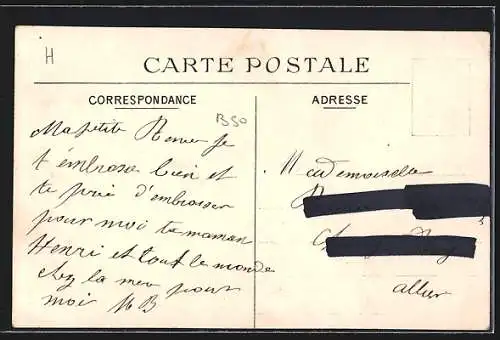 H
CARTE POSTALE
CORRESPONDANCE
B50
ADRESSE
Ma petite Renee je
t'embrasse bien et
te prie d'embrasser
pour moi ta maman
Henri et tout le monde
chez la mere pour
moi MB
Mademoiselle
allier